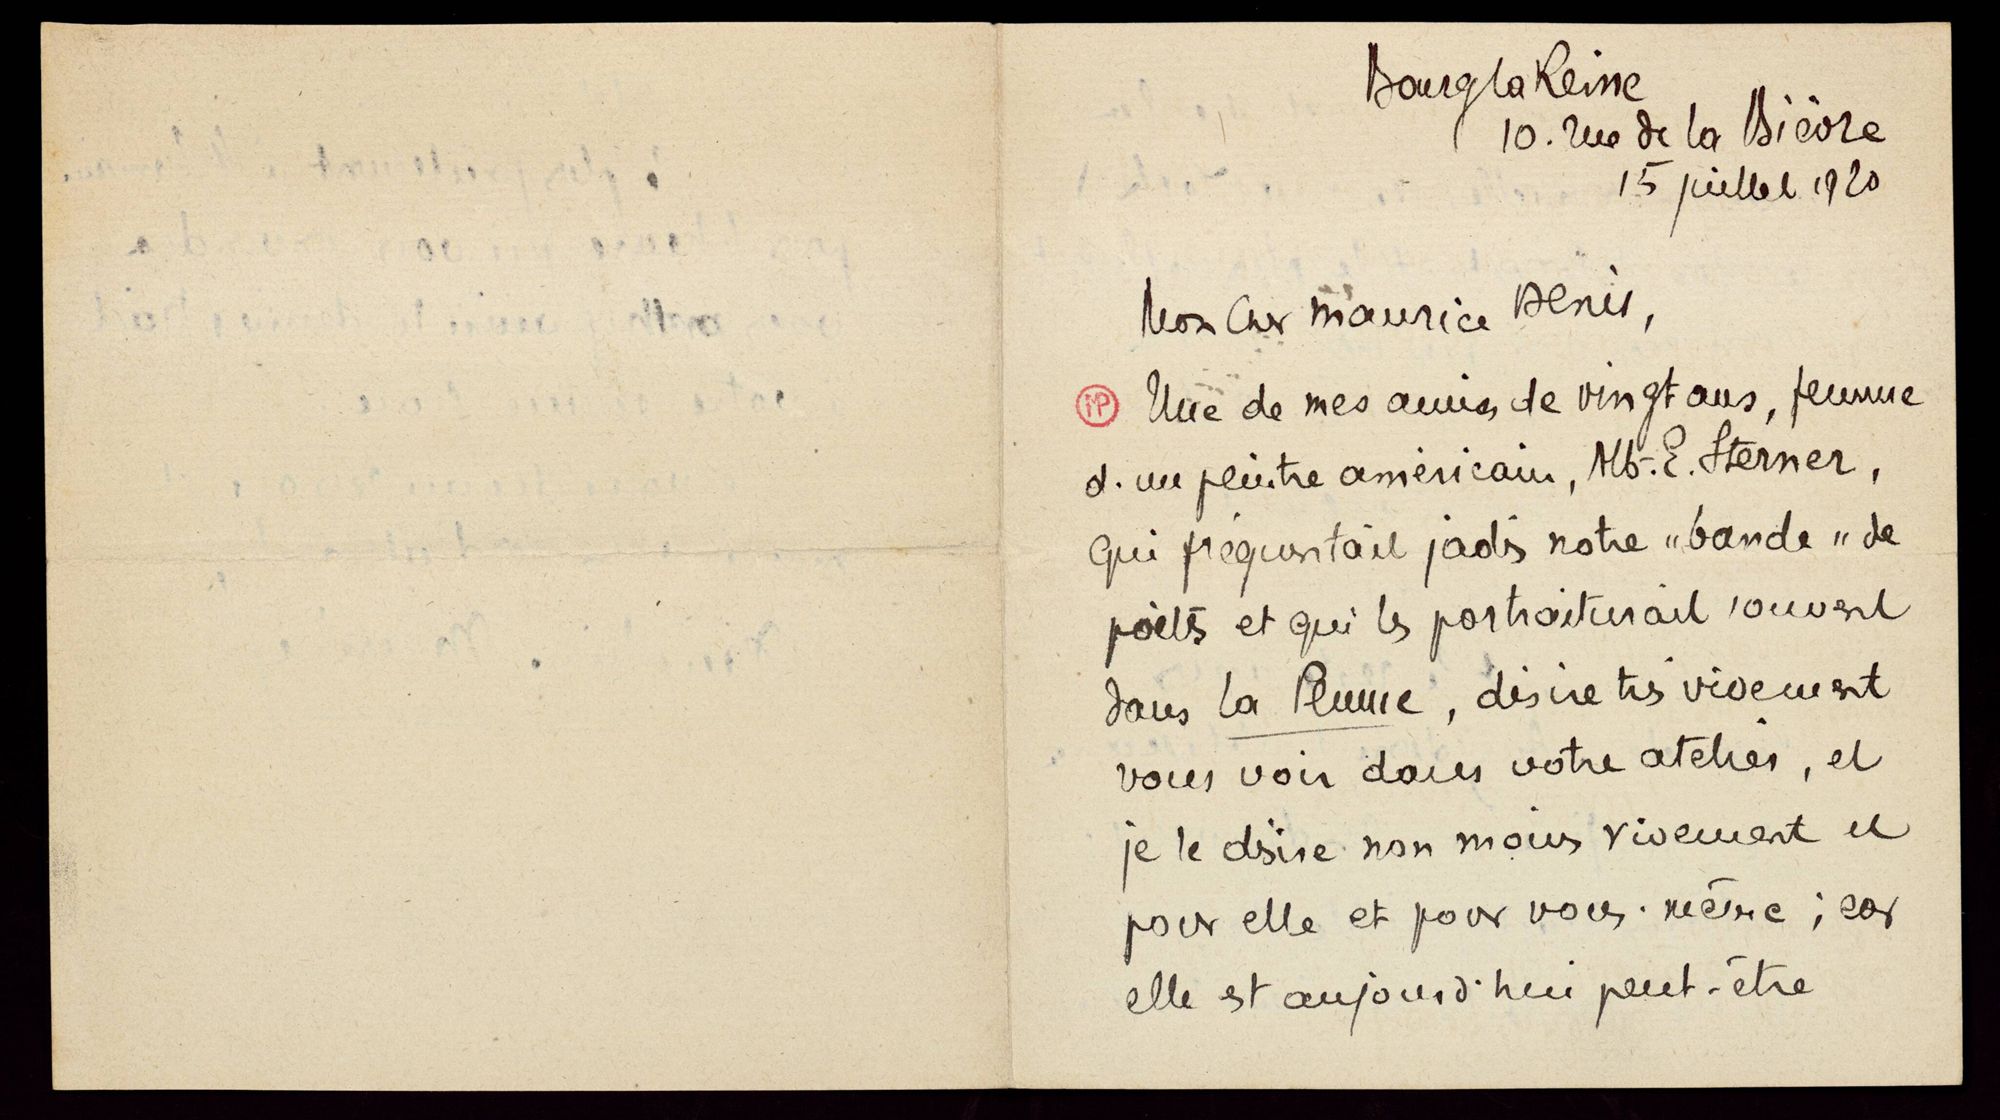 Bourg la Reine
10. rue de la Bièvre
15 juillet 1920
Mon cher Maurice Denis,
MP
Une de mes amies de vingt ans, femme
d'un peintre américain, Alb. E. Sterner,
qui fréquentait jadis notre "bande" de
poètes et qui les portraiturait souvent
dans la Plume, désire très vivement
vous voir dans votre atelier, et
je le désire non moins vivement et
pour elle et pour vous-même ; car
elle est aujourd'hui peut-être